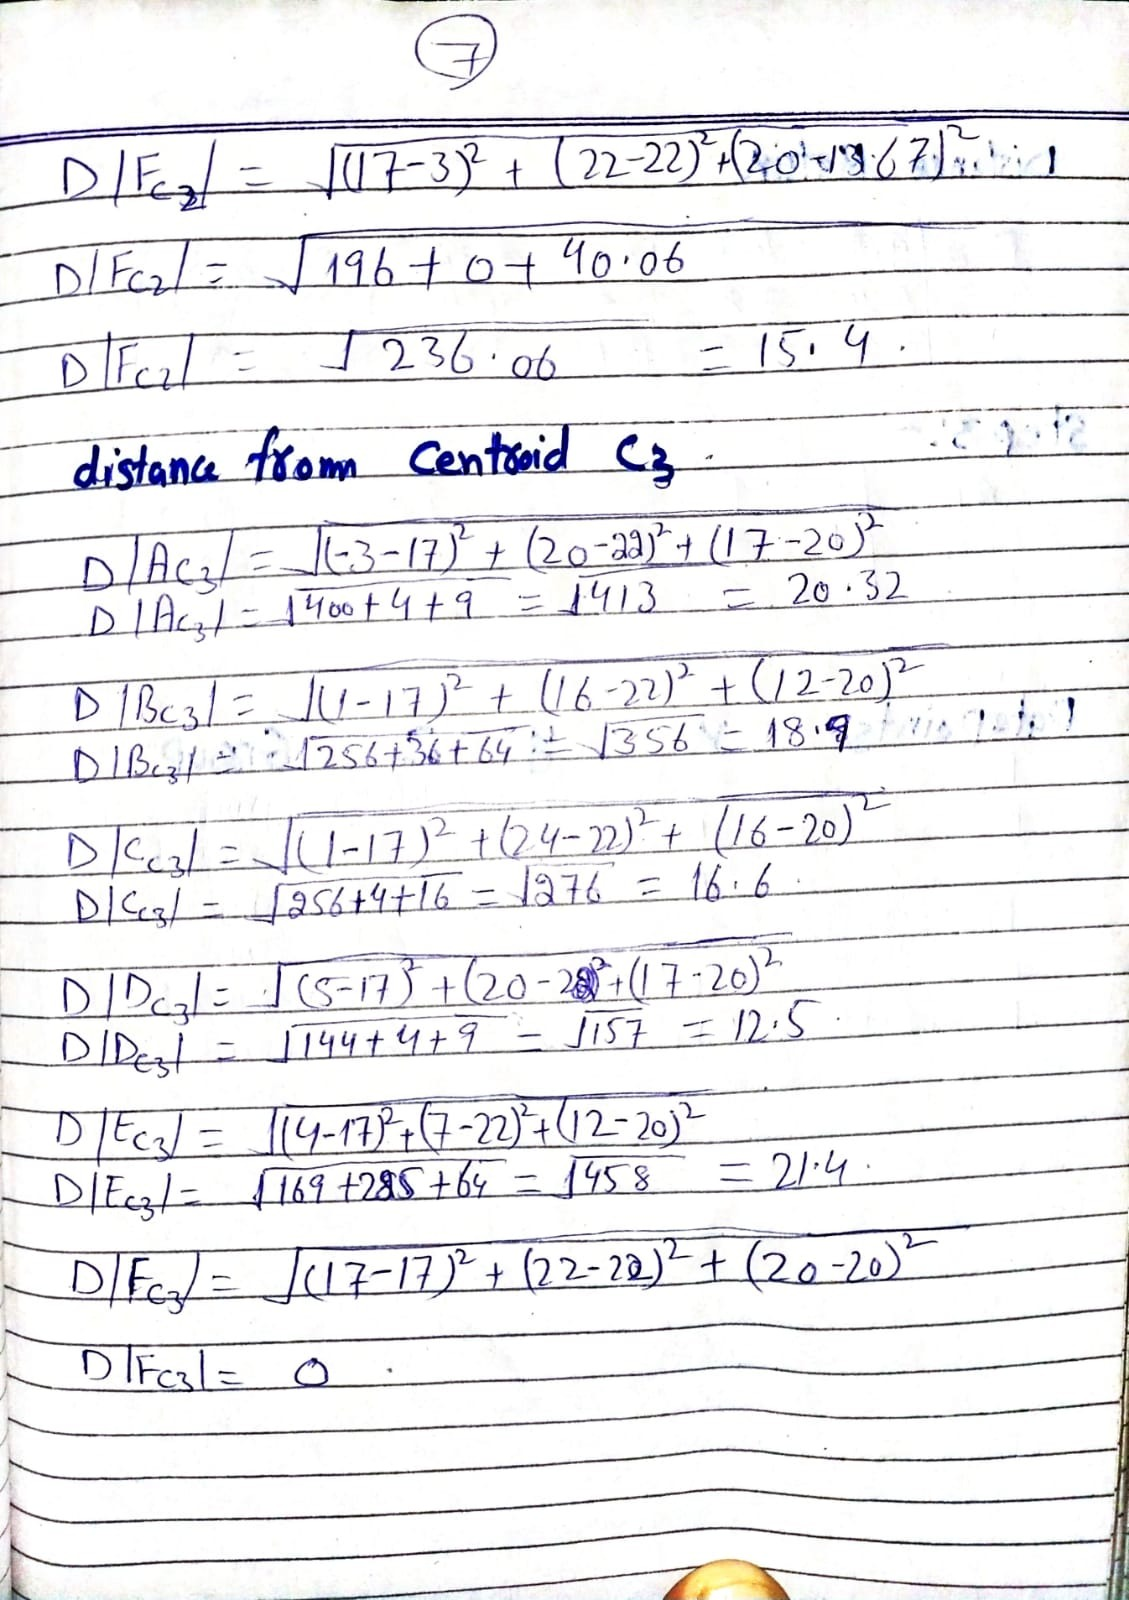 7
D|Fc2| = √(17-3)² + (22-22)² + (20-13.67)²
D|Fc2| = √196 + 0 + 40.06
D|Fc2| = √236.06 = 15.4.
distance from Centroid C3.
D|Ac3| = √(-3-17)² + (20-22)² + (17-20)²
D|Ac3| = √400+4+9 = √413 = 20.32
D|Bc3| = √(1-17)² + (16-22)² + (12-20)²
D|Bc3| = √256+36+64 = √356 = 18.9
D|Cc3| = √(1-17)² + (24-22)² + (16-20)²
D|Cc3| = √256+4+16 = √276 = 16.6.
D|Dc3| = √(5-17)² + (20-22)² + (17-20)²
D|Dc3| = √144+4+9 = √157 = 12.5.
D|Ec3| = √(4-17)² + (7-22)² + (12-20)²
D|Ec3| = √169+225+64 = √458 = 21.4.
D|Fc3| = √(17-17)² + (22-22)² + (20-20)²
D|Fc3| = 0.